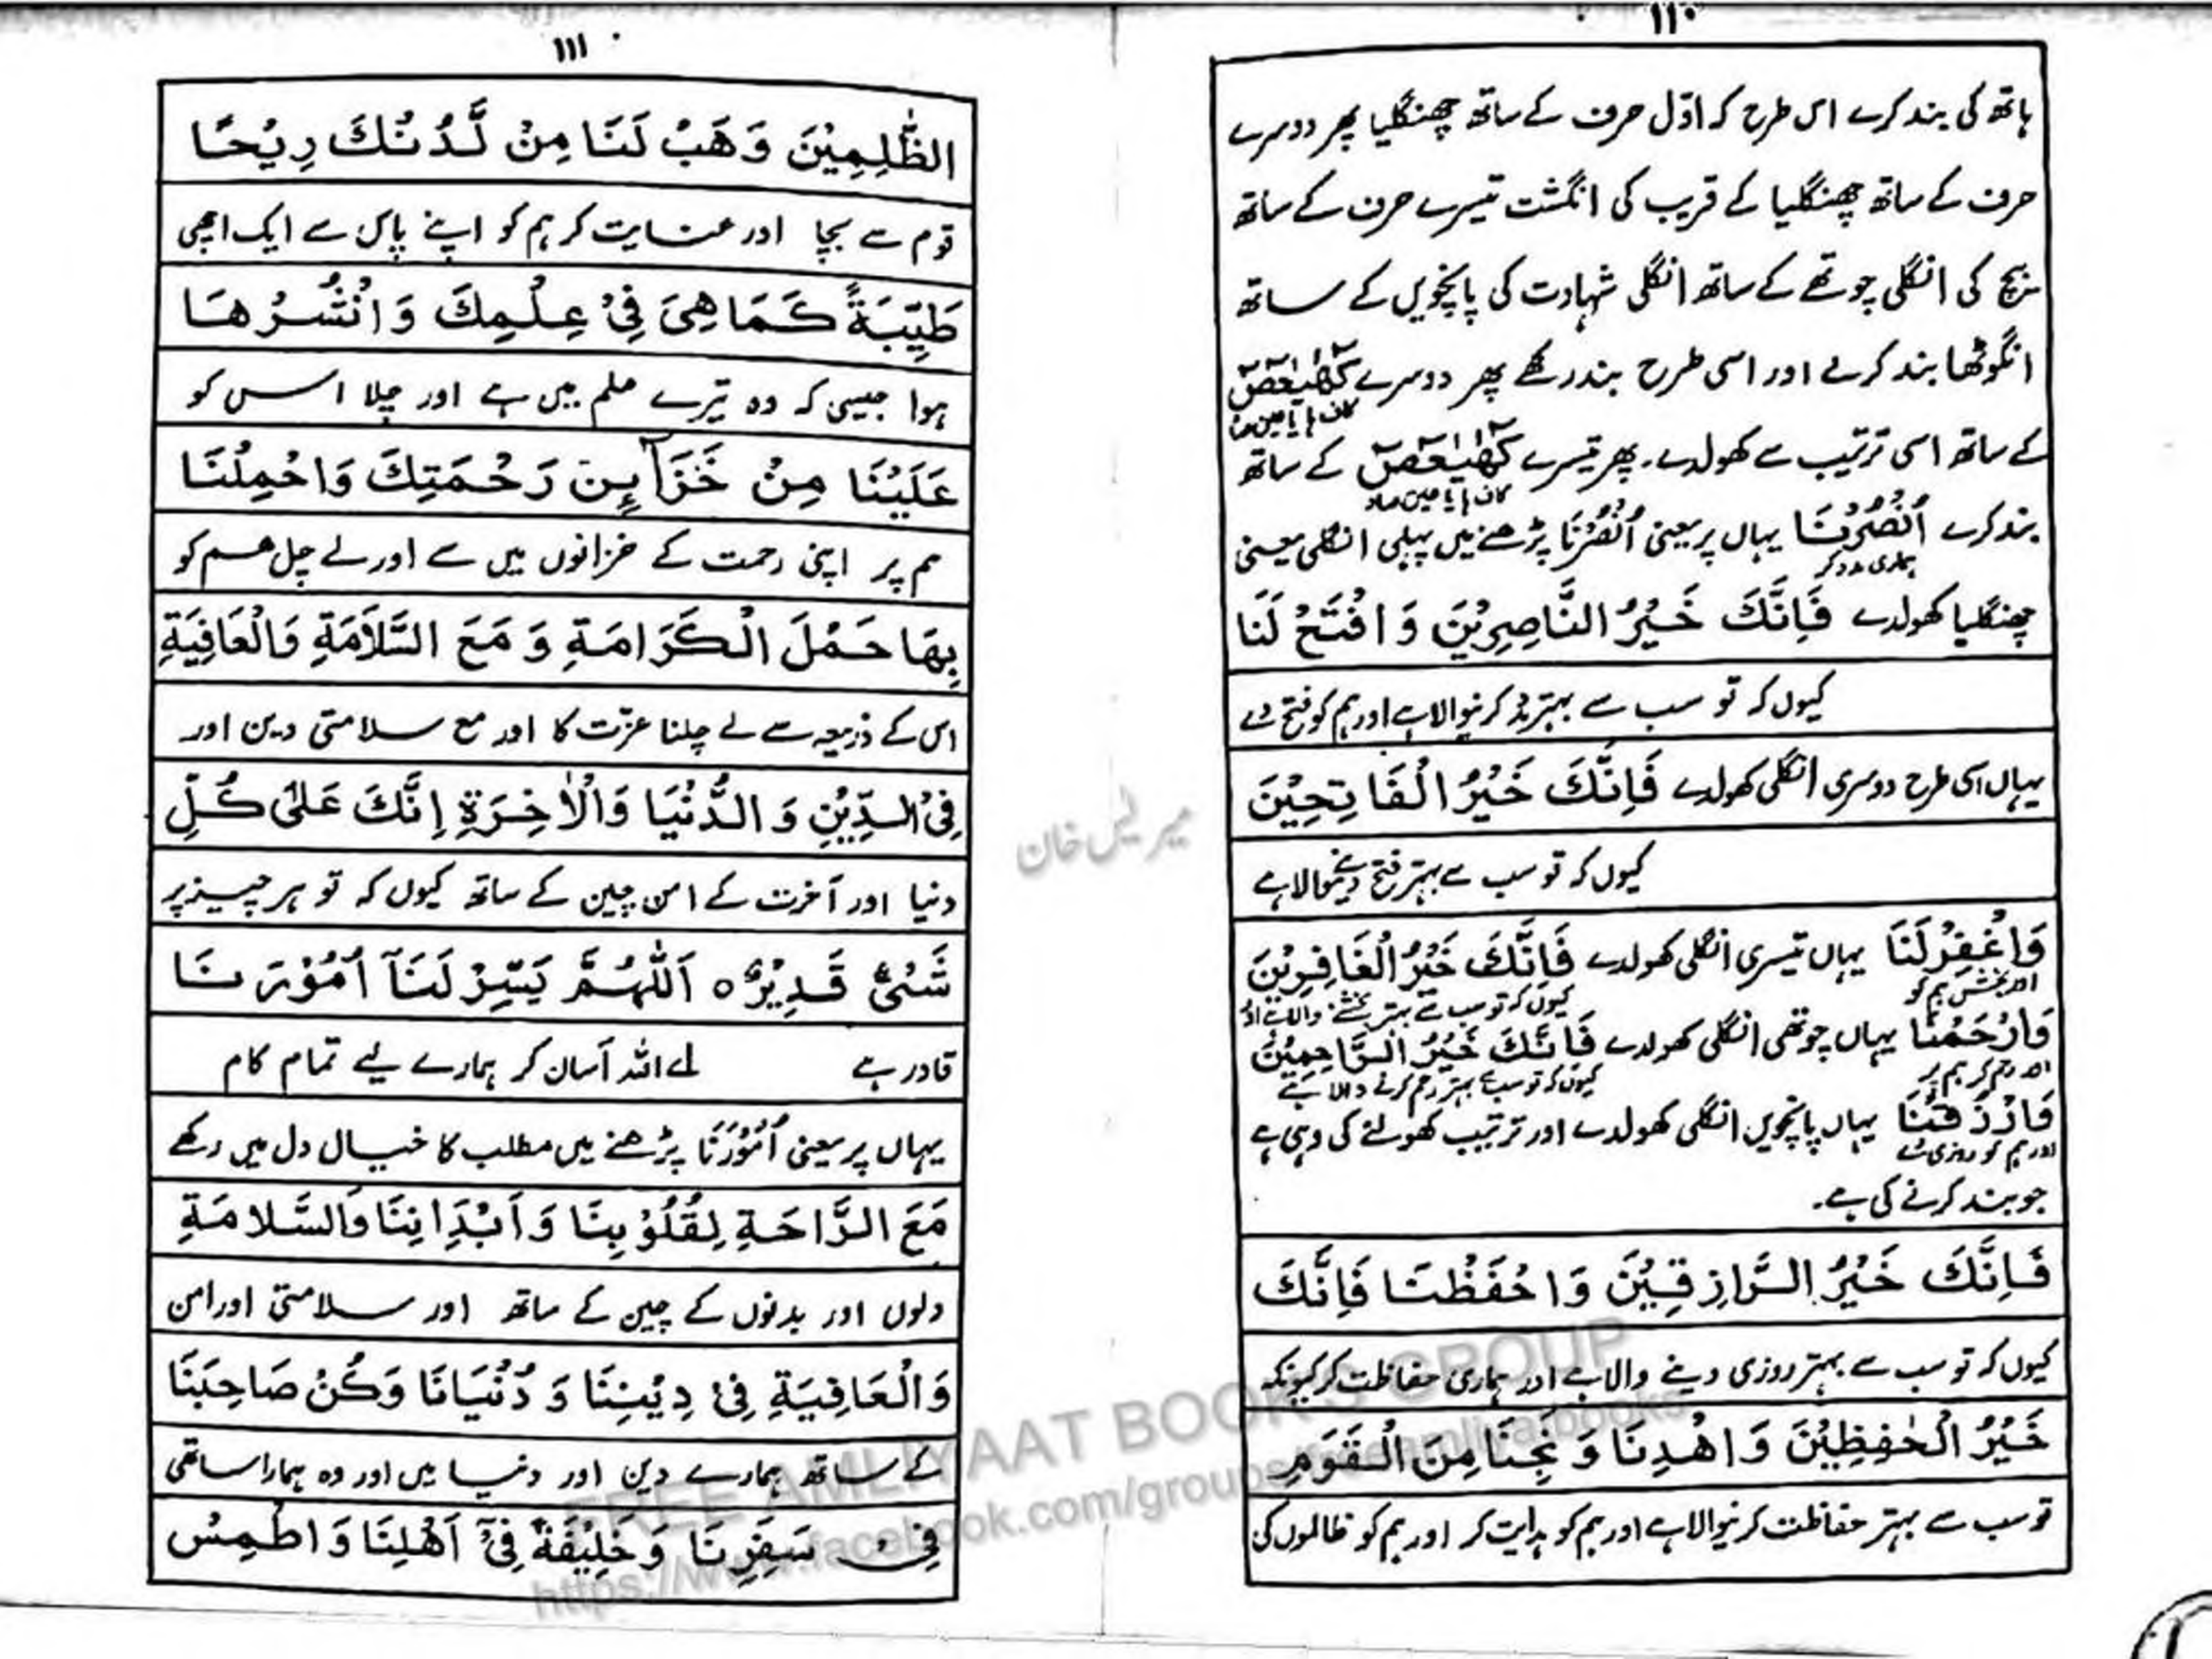 ۱۱۰
ہاتھ کی بند کرے اس طرح کہ اوّل حرف کے ساتھ چھنگلیا پھر دوسرے
حرف کے ساتھ چھنگلیا کے قریب کی انگشت تیسرے حرف کے ساتھ
بیچ کی انگلی چوتھے کے ساتھ انگلی شہادت کی پانچویں کے ساتھ
انگوٹھا بند کرلے اور اسی طرح بند رکھے پھر دوسرے كٓهٰيٰعٓصٓ
کاف ہا یا عین صاد
کے ساتھ اسی ترتیب سے کھولدے۔ پھر تیسرے كٓهٰيٰعٓصٓ کے ساتھ
کاف ہا یا عین صاد
بند کرے اُنْصُرْنَا یہاں پر یعنی اُنْصُرْنَا پڑھنے میں پہلی انگلی یعنی
ہماری مدد کر
چھنگلیا کھولدے فَاِنَّكَ خَيْرُ النَّاصِرِيْنَ وَافْتَحْ لَنَا
کیوں کہ تو سب سے بہتر مدد کرنیوالا ہے اور ہم کو فتح دے
یہاں اسی طرح دوسری انگلی کھولدے فَاِنَّكَ خَيْرُ الْفَاتِحِيْنَ
کیوں کہ تو سب سے بہتر فتح دینے والا ہے
وَاغْفِرْلَنَا یہاں تیسری انگلی کھولدے فَاِنَّكَ خَيْرُ الْغَافِرِيْنَ
اور بخش ہم کو کیوں کہ تو سب سے بہتر بخشنے والا ہے اور
وَارْحَمْنَا یہاں چوتھی انگلی کھولدے فَاِنَّكَ خَيْرُ الرَّاحِمِيْنَ
اور رحم کر ہم پر کیوں کہ تو سب سے بہتر رحم کرنے والا ہے
فَارْزُقْنَا یہاں پانچویں انگلی کھولدے اور ترتیب کھولنے کی وہی ہے
اور ہم کو روزی دے
جو بند کرنے کی ہے۔
فَاِنَّكَ خَيْرُ الرَّازِقِيْنَ وَاحْفَظْنَا فَاِنَّكَ
کیوں کہ تو سب سے بہتر روزی دینے والا ہے اور ہماری حفاظت کر کیونکہ
خَيْرُ الْحٰفِظِيْنَ وَاهْدِنَا وَنَجِّنَا مِنَ الْقَوْمِ
تو سب سے بہتر حفاظت کرنیوالا ہے اور ہم کو ہدایت کر اور ہم کو ظالموں کی
۱۱۱
الظّٰلِمِيْنَ وَهَبْ لَنَا مِنْ لَّدُنْكَ رِيْحًا
قوم سے بچا اور عنایت کر ہم کو اپنے پاس سے ایک اچھی
طَيِّبَةً كَمَا هِىَ فِىْ عِلْمِكَ وَانْشُرْهَا
ہوا جیسی کہ وہ تیرے علم میں ہے اور چلا اس کو
عَلَيْنَا مِنْ خَزَآئِنِ رَحْمَتِكَ وَاحْمِلْنَا
ہم پر اپنی رحمت کے خزانوں میں سے اور لے چل ہم کو
بِهَا حَمْلَ الْكَرَامَةِ وَمَعَ السَّلَامَةِ وَالْعَافِيَةِ
اس کے ذریعہ سے لے چلنا عزّت کا اور مع سلامتی دین اور
فِى الدِّيْنِ وَالدُّنْيَا وَالْاٰخِرَةِ اِنَّكَ عَلٰى كُلِّ
دنیا اور آخرت کے امن چین کے ساتھ کیوں کہ تو ہر چیز پر
شَىْءٍ قَدِيْرٌ ه اَللّٰهُمَّ يَسِّرْ لَنَآ اُمُوْرَنَا
قادر ہے اے اللہ آسان کر ہمارے لیے تمام کام
یہاں پر یعنی اُمُوْرَنَا پڑھنے میں مطلب کا خیال دل میں رکھے
مَعَ الرَّاحَةِ لِقُلُوْبِنَا وَاَبْدَانِنَا وَالسَّلَامَةِ
دلوں اور بدنوں کے چین کے ساتھ اور سلامتی اور امن
وَالْعَافِيَةِ فِىْ دِيْنِنَا وَدُنْيَانَا وَكُنْ صَاحِبَنَا
کے ساتھ ہمارے دین اور دنیا میں اور وہ ہمارا ساتھی
فِىْ سَفَرِنَا وَخَلِيْفَةً فِىْٓ اَهْلِنَا وَاطْمِسْ
FREE AMLIYAAT BOOKS GROUP
https://www.facebook.com/groups/freeamliyatbooks